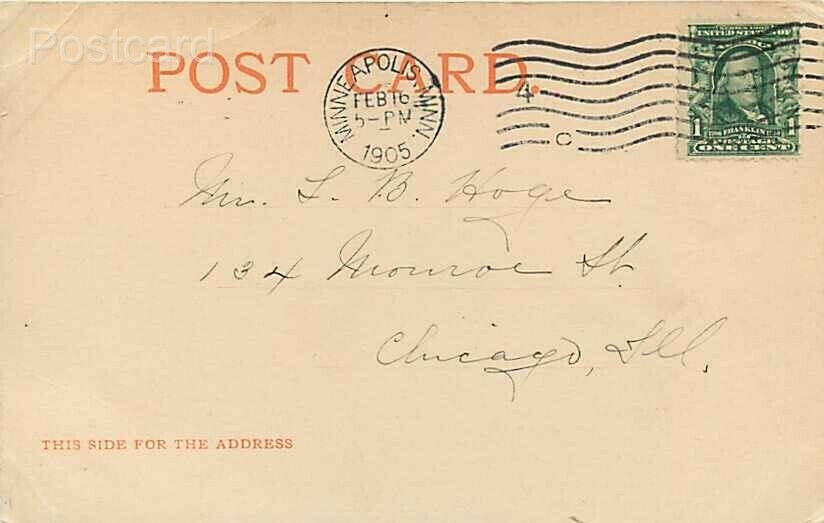 Postcard
POST CARD.
MINNEAPOLIS, MINN.
FEB 16
5-PM
1905
4
C
UNITED STATES OF
FRANKLIN
1 1
POSTAGE
ONE CENT
Mr. L. B. Hoge
134 Monroe St.
Chicago, Ill.
THIS SIDE FOR THE ADDRESS